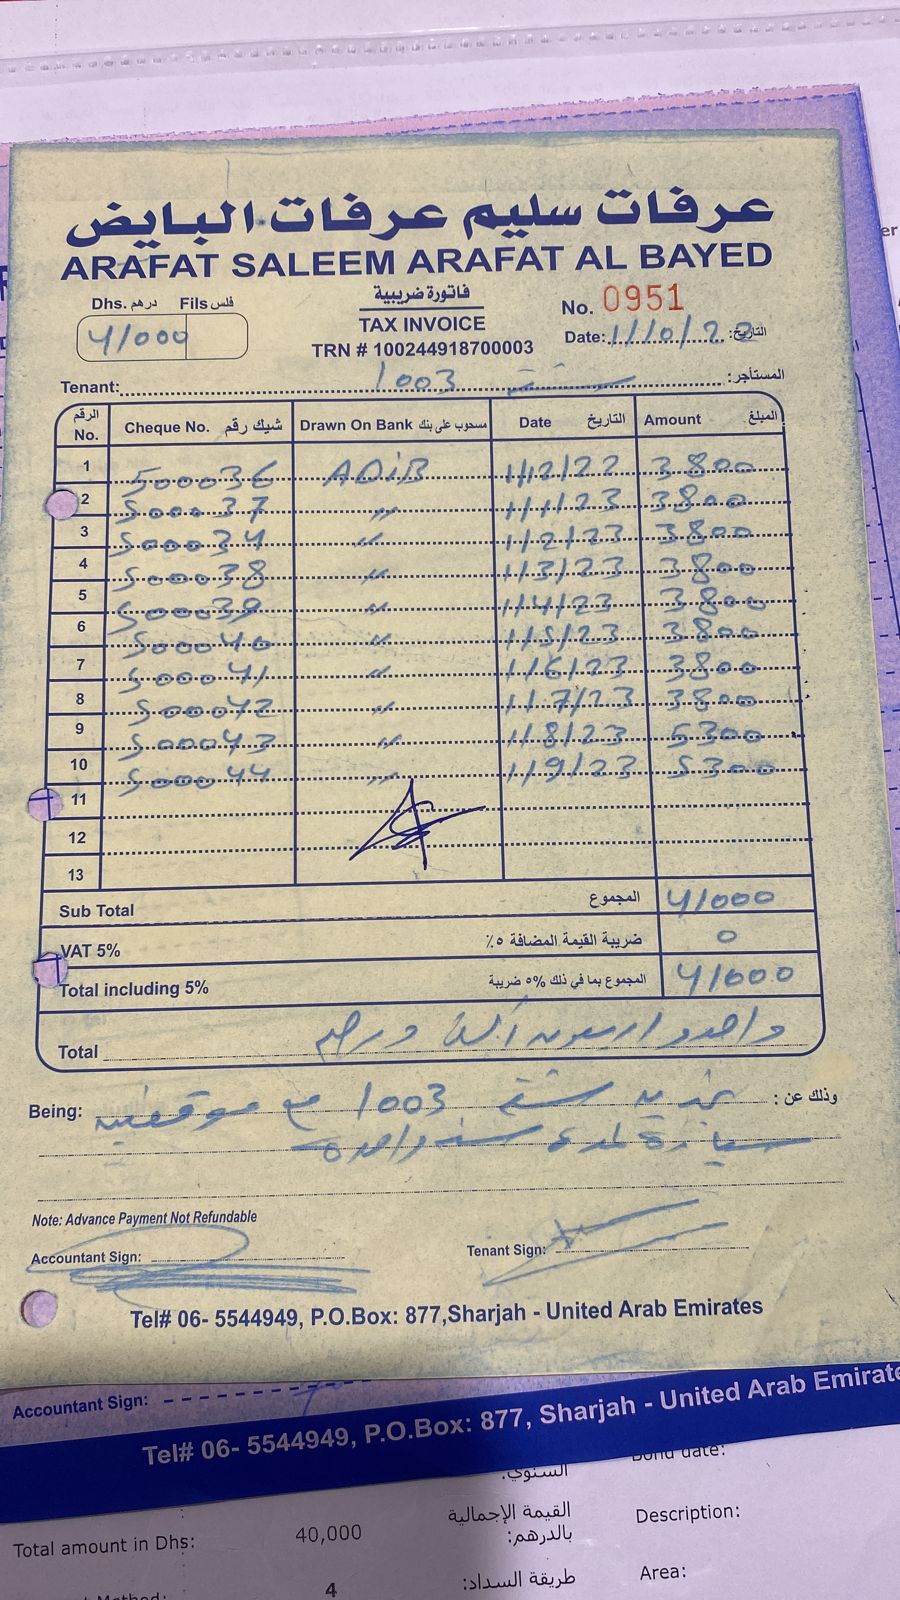 عرفات سليم عرفات البايض
ARAFAT SALEEM ARAFAT AL BAYED
Dhs. درهم Fils فلس
41000
فاتورة ضريبية
TAX INVOICE
TRN # 100244918700003
No. 0951
Date: 1/10/22 التاريخ:
Tenant: 1003 شقة المستأجر:
الرقم No. Cheque No. شيك رقم Drawn On Bank مسحوب على بنك Date التاريخ Amount المبلغ
1 500036 ADIB 1/12/22 3800
2 500037 " 1/1/23 3800
3 500034 " 1/2/23 3800
4 500038 " 1/3/23 3800
5 500039 " 1/4/23 3800
6 500040 " 1/5/23 3800
7 500041 " 1/6/23 3800
8 500042 " 1/7/23 3800
9 500043 " 1/8/23 5300
10 500044 " 1/9/23 5300
11
12
13
Sub Total المجموع 41000
VAT 5% ضريبة القيمة المضافة ٥٪ 0
Total including 5% المجموع بما في ذلك ٥% ضريبة 41000
Total واحد و اربعون ألف درهم
Being: تجديد شقة 1003 مع موقف وذلك عن:
سيارة لمدة سنة واحدة
Note: Advance Payment Not Refundable
Accountant Sign:
Tenant Sign:
Tel# 06- 5544949, P.O.Box: 877,Sharjah - United Arab Emirates
Accountant Sign:
Tel# 06- 5544949, P.O.Box: 877, Sharjah - United Arab Emirate
السنوي:
Bond date:
Total amount in Dhs: 40,000 القيمة الإجمالية بالدرهم:
Description:
Method: 4 طريقة السداد:
Area: